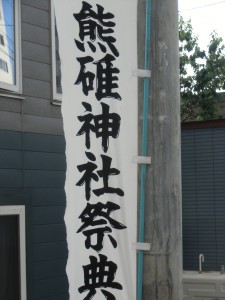 熊碓神社祭典